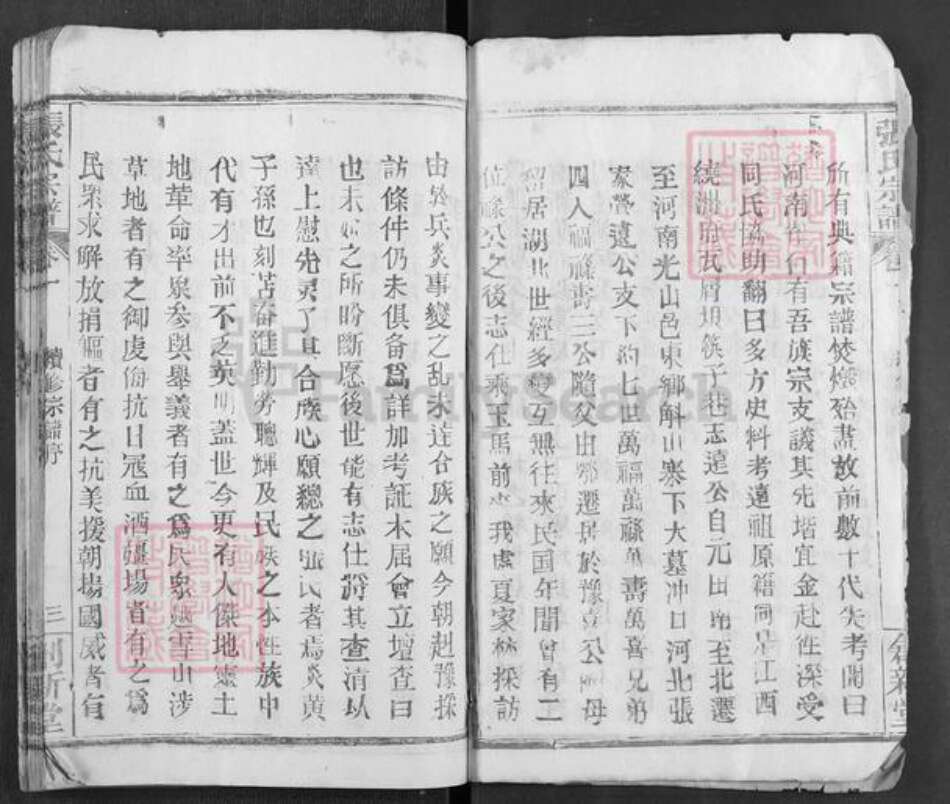 張氏宗譜
所有典籍宗譜焚燬殆盡故前數十代失考聞曰
河南省有吾族宗支議其先堦宜金赴性深受
同氏協助翻曰多方史料考遠祖原籍同是江西
饒洲瓦屑垻筷子巷志遠公自元由南至北遷
至河南光山邑東鄉斛山寨下大墓冲口河北張
家營遠公支下約七世萬福萬祿萬壽萬喜兄弟
四人福祿壽三公隨父由鄂遷居於豫喜公母
留居湖北世經多變互無往來民国年間曾有工
位祿公之後志仕乘玉馬前來我處夏家林採訪
由於兵炎事變之乱未達合族之願今朝赴豫採
訪條件仍未俱备爲詳加考証本屆會立壇查曰
也未如之所盼斷愿後世能有志仕將其查清以
達上慰先灵了其合族心願總之張氏者焉炎黄
子孫也刻苦奋進勤劳聰輝及民族之本性族中
代有才出前不之英明蓋世今更有人傑地靈土
地革命率眾参與舉義者有之爲民眾雪山涉
草地者有之御虔侮抗日冦血洒疆場者有之爲
民眾求解放捐軀者有之抗美援朝揚國威者有
張氏宗譜
卷一
續修宗譜序
三